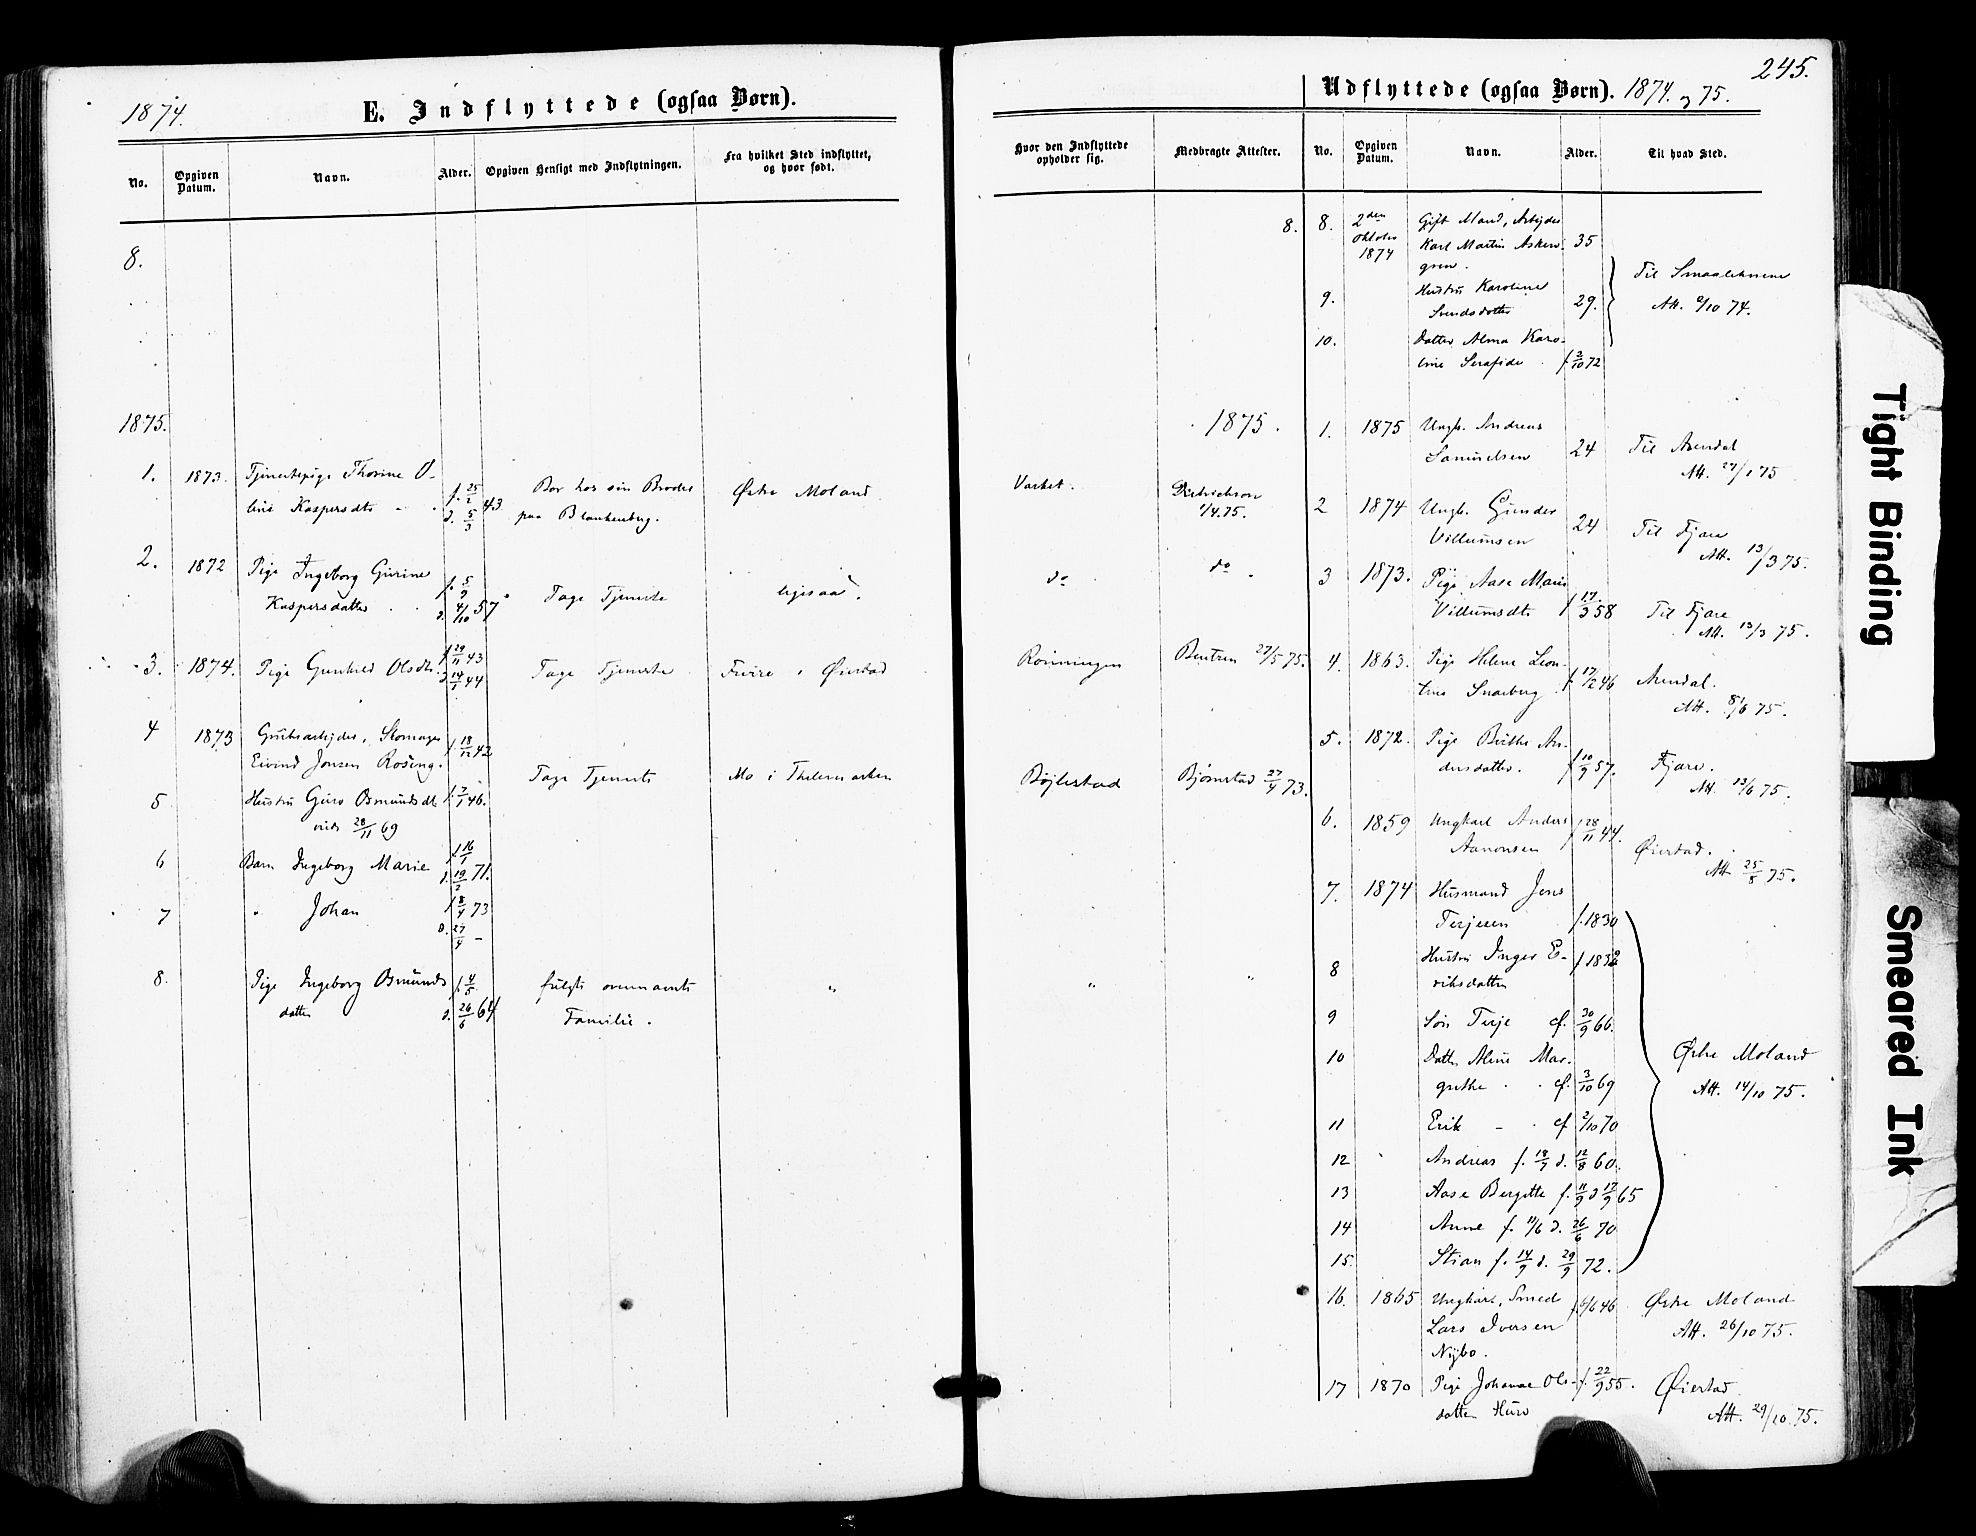 1874.
E. Indflyttede (ogsaa Børn).
No.
Opgiven Datum.
Navn.
Alder.
Opgiven Hensigt med Indflytningen.
Fra hvilket Sted indflyttet, og hvor født.
8.
1875.
1. 1873. Tjenestepige Thorine O-
line Kaspersdtr f. 25/2 d. 5/3 43 Bor hos sin Broder
paa Blankenberg. Østre Moland
2. 1872 Pige Ingeborg Gurine
Kaspersdatter f. 5/9 d. 4/10 57 Tage Tjeneste ligesaa.
3. 1874. Pige Gunhild Olsdtr. f 29/11 43 d 14/1 44 Tage Tjeneste i Øiestad
4 1873 Grubearbejder,
Eivind Jonsen f 18/12 42 Tage Tjeneste Mo i Thelemarken
5 Hustru Guro Osmundsdtr f. 7/1 46.
viede 28/11 69
6 Barn Ingeborg Marie f. 16/1 d. 19/2 71.
7 " Johan f 8/4 73 d. 27/4 -
8. Pige Ingeborg Osmunds
datter f. 4/5 d. 26/6 64 fulgte ovennævnte
Familie. "
245.
Udflyttede (ogsaa Børn). 1874. og 75.
Hvor den Indflyttede opholder sig.
Medbragte Attester.
No.
Opgiven Datum.
Navn.
Alder.
Til hvad Sted.
8. 8. 2den Oktober 1874 Gift Mand, Arbejder
Karl Martin Asken-
gren. 35
9. Hustru Karoline
Svendsdatter 29.
10. Datter Alma Karo-
line Serafide f 2/10 72
Til Smaalenene
Att. 2/10 74.
1875.
Varket. Dietrichson 1/4.75.
do do
Rønningen Bentsen 27/5 75.
Bøjlestad Bjørnstad 27/4 73.
" "
1. 1875 Ungk. Andreas
Samuelsen 24 Til Arendal
Att. 27/1 75
2 1874 Ungk. Gunder
Villumsen 24 Til Fjære
Att. 13/3 75.
3 1873. Pige Aase Marie
Villumsdtr f 17/3 58 Til Fjære
Att. 13/3 75.
4. 1863. Pige Helene Leon-
tine Snarberg f. 17/2 46 Arendal.
Att. 8/6 75.
5. 1872. Pige Birthe An-
dersdatter. f 10/9 57. Fjære.
Att. 13/6 75.
6. 1859 Ungkarl Anders
Aanonsen f 28/11 44. Øiestad.
Att. 25/8 75.
7. 1874 Husmand Jens
Terjesen f. 1830
8 Hustru Inger E-
riksdatter f 1832
9 Søn Terje f. 30/9 66.
10 Datter Aline Mar-
grethe f. 3/10 69
Østre Moland
Att. 14/10 75.
11 Erik - f 2/10 70
12 Andreas f. 18/7 d. 12/8 60.
13 Aase Bergitte f. 11/9 d 17/9 65
14 Anne f. 11/6 d. 26/6 70
15. Stian f. 14/9 d. 29/9 72.
16. 1865 Ungkarl, Smed
Lars Iversen
Nybo. f. 6/6 46 Østre Moland
Att. 26/10 75.
17 1870 Pige Johanne Ols-
datter f. 22/9 55. Øiestad
Att. 29/10 75.
Tight Binding
Smeared Ink